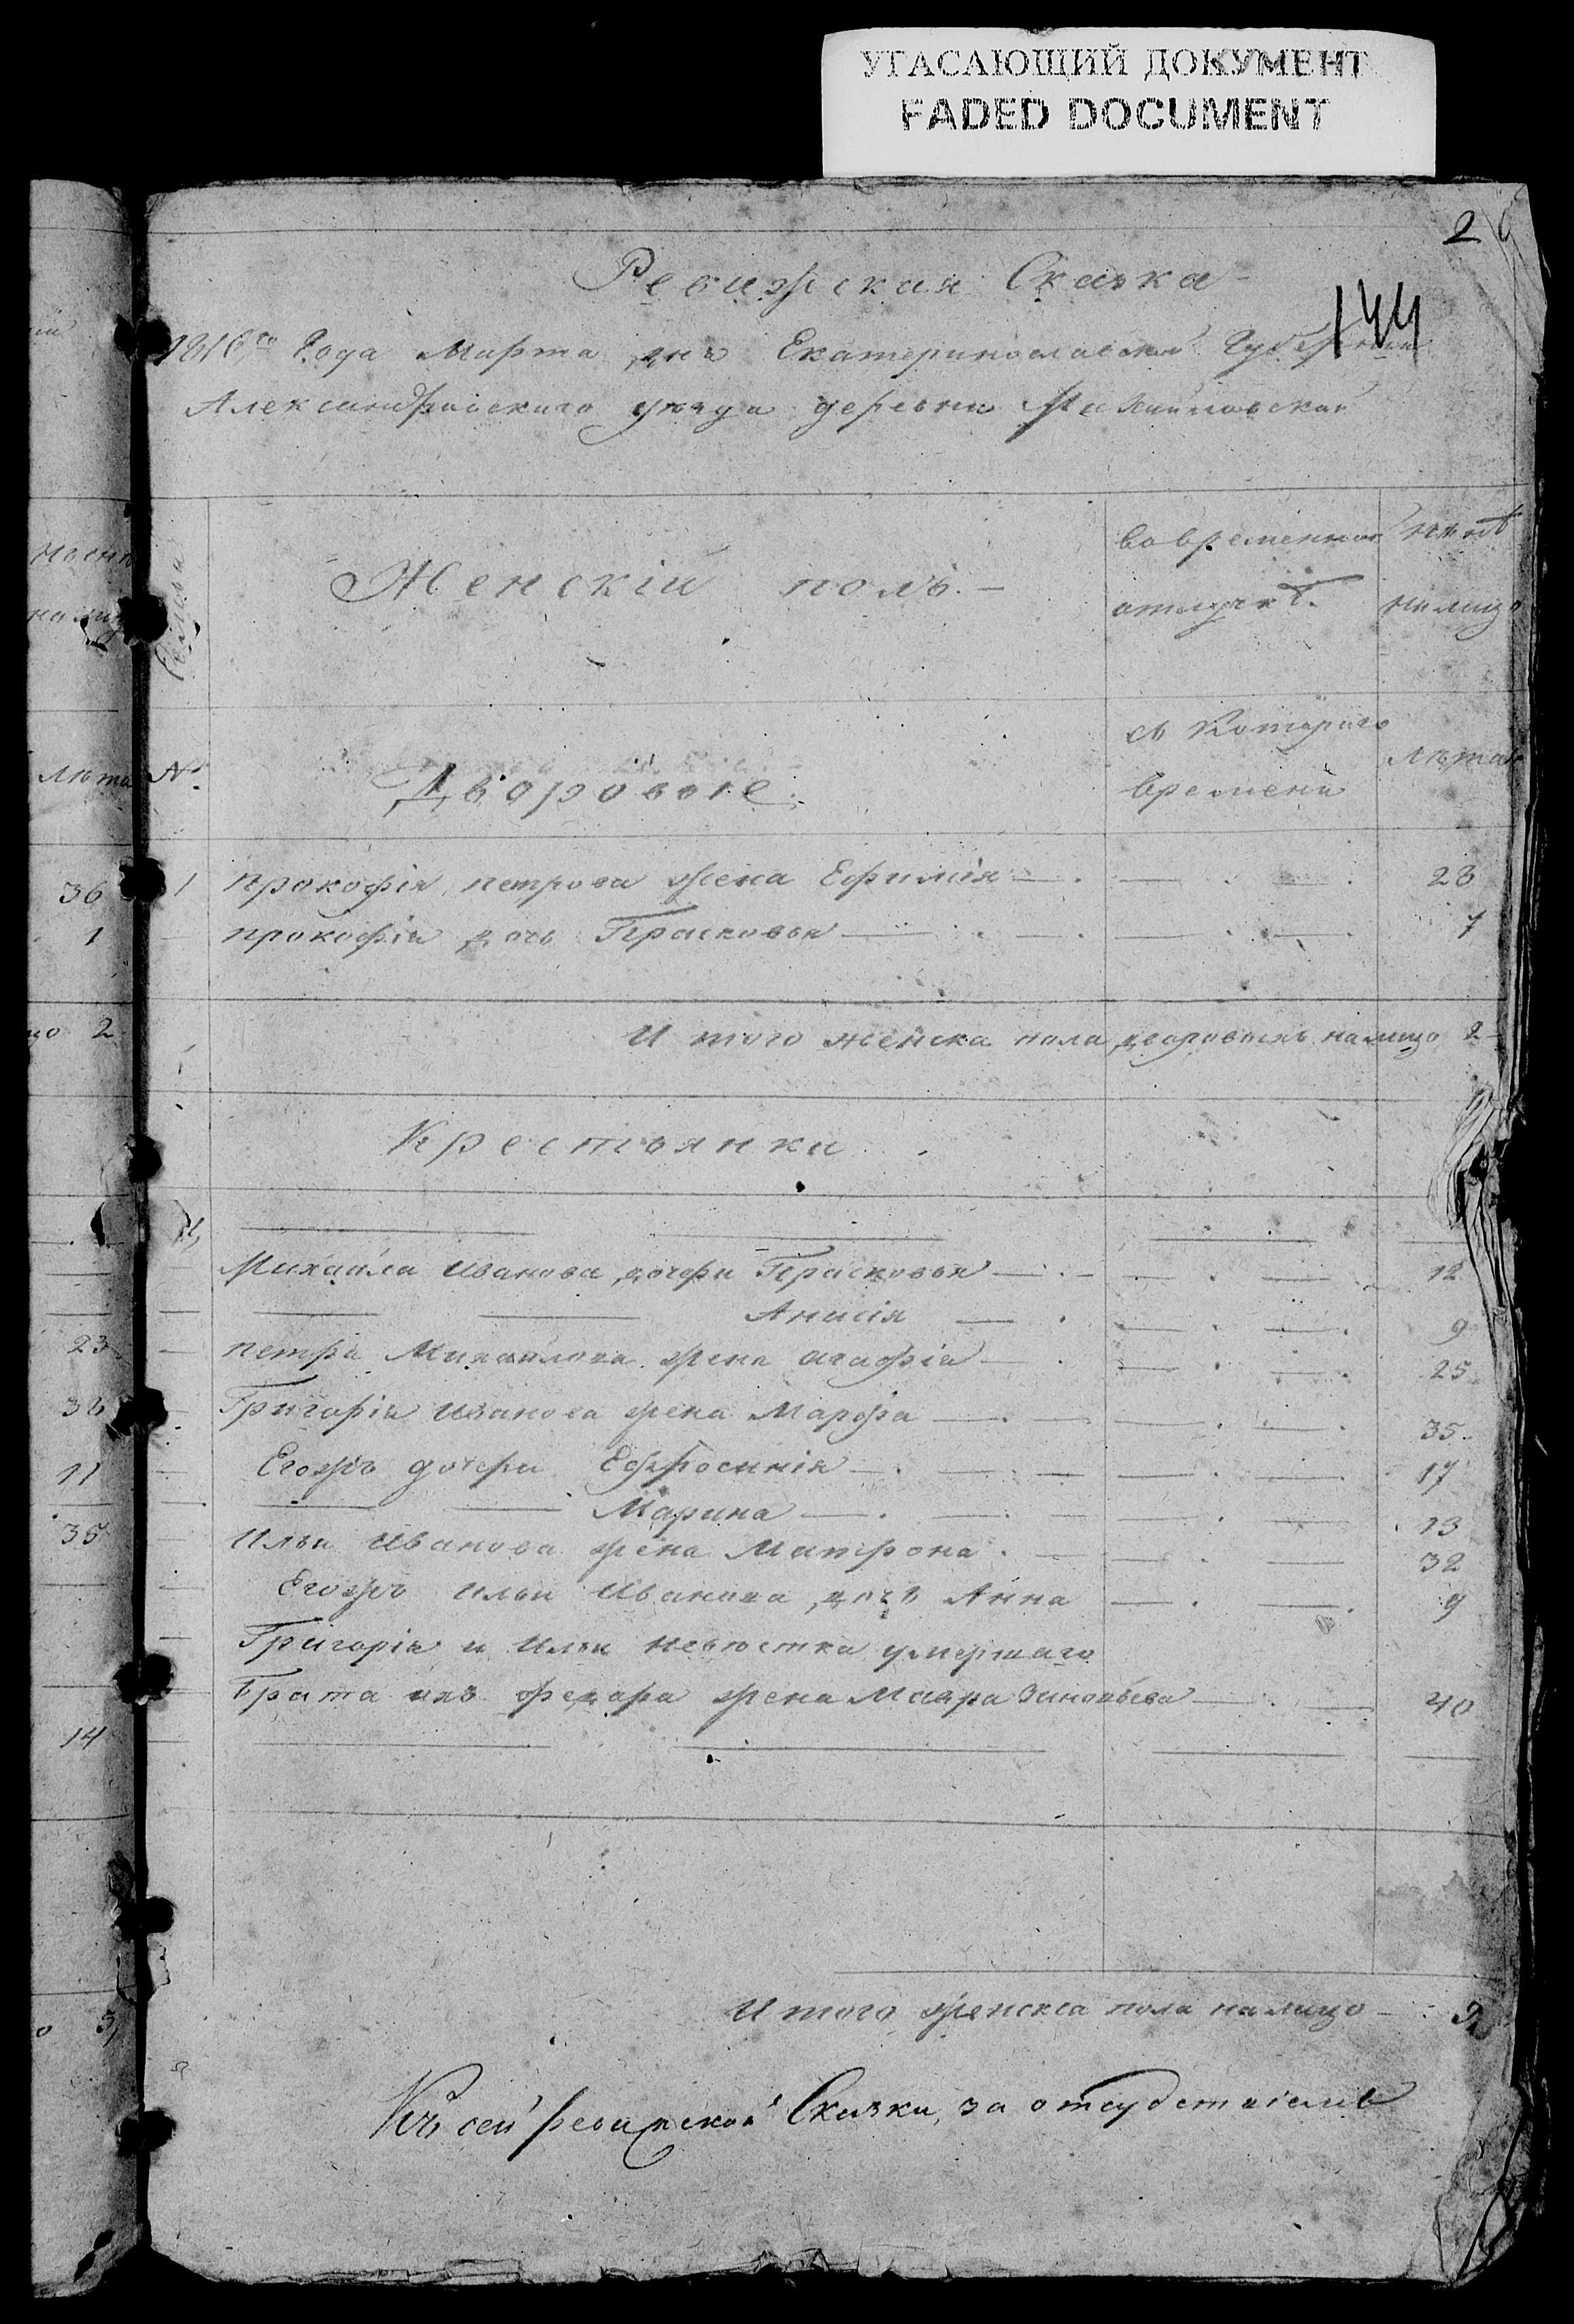 УГАСАЮЩИЙ ДОКУМЕНТ
FADED DOCUMENT
2
Ревижская Сказка
144
1816го Года Марта дня Екатеринославской Губернии
Александровского уезда деревни Михайловской
Женскій полъ.
во временной отлучкѣ.
нынѣ налицо
№
Дворовые
съ Котораго времени
лѣта
1 прокофія петрова жена Ефимія 28
прокофія дочь Прасковья 7
И того женска пола дворовыхъ налицо 2
Крестьянки
Михайла Иванова дочери Прасковья 12
Анисія 9
петра Михайлова жена агафія 25
Григорія Иванова жена Марфа 35
Егожъ дочери Ефросинія 17
Марина 13
Ильи Иванова жена Матрона 32
Егожъ Ильи Иванова дочь Анна 9
Григорія и Ильи невестка умершаго
брата ихъ федора жена Мавра Зиновьева 40
И того женска пола налицо 9
Къ сей ревижской Сказки, за отсудствіемъ
36
1
2
23
11
35
14
3